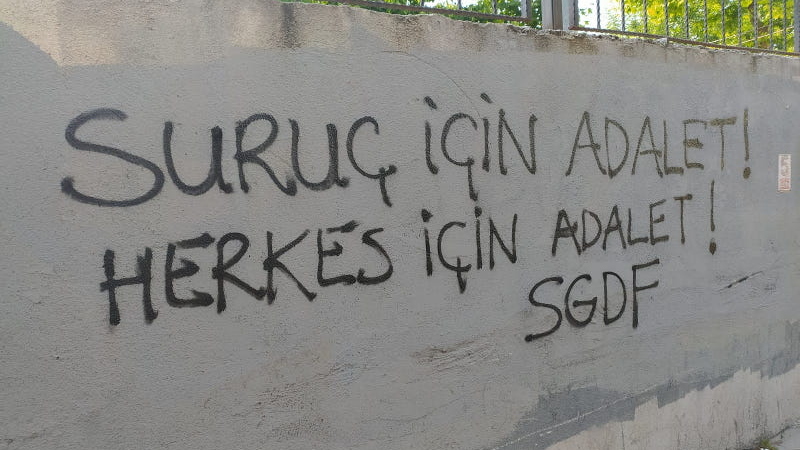 SURUÇ İÇİN ADALET!
HERKES İÇİN ADALET!
SGDF